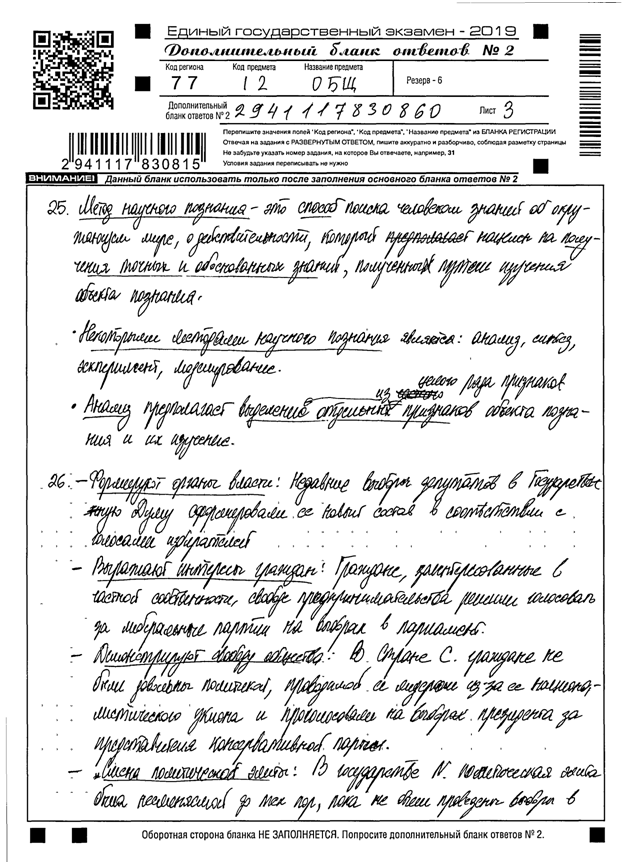 Единый государственный экзамен - 2019
Дополнительный бланк ответов № 2
Код региона Код предмета Название предмета
77 12 ОБЩ Резерв - 6
Дополнительный бланк ответов № 2 2941117830860 Лист 3
Перепишите значения полей "Код региона", "Код предмета", "Название предмета" из БЛАНКА РЕГИСТРАЦИИ
Отвечая на задания с РАЗВЕРНУТЫМ ОТВЕТОМ, пишите аккуратно и разборчиво, соблюдая разметку страницы
Не забудьте указать номер задания, на которое Вы отвечаете, например, 31
Условия задания переписывать не нужно
2 941117 830815
ВНИМАНИЕ! Данный бланк использовать только после заполнения основного бланка ответов № 2
25. Метод научного познания - это способ поиска человеком знаний об окру-
жающем мире, о действительности, который предполагает нацелен на полу-
чения точных и обоснованных знаний, полученных путем изучения
объекта познания.
· Некоторыми методами научного познания является: анализ, синтез,
эксперимент, моделирование.
из целого ряда признаков
· Анализ предполагает выделение отдельных признаков объекта позна-
ния и их изучение.
26. - Формируют органы власти: Недавние выборы депутатов в Государствен-
ную Думу сформировали ее новый состав в соответствии с
голосами избирателей
- Выражают интересы граждан: Граждане, заинтересованные в
частной собственности, свободе предпринимательства решили голосовать
за либеральные партии на выборах в парламент.
- Демонстрируют свободу общества: В Стране С. граждане не
были довольны политикой, проводимой ее лидерами из за ее национа-
листического уклона и проголосовали на выборах президента за
представителя консервативной партии.
- Смена политической элиты: В государстве N. политическая элита
была несменяемой до тех пор, пока не были проведены выборы в
Оборотная сторона бланка НЕ ЗАПОЛНЯЕТСЯ. Попросите дополнительный бланк ответов № 2.